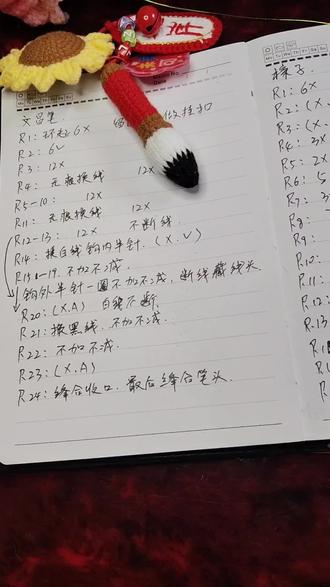 文昌笔
R1: 环起6X 做挂扣
R2: 6V
R3: 12X
R4: 无痕换线 12X
R5-10: 12X
R11: 无痕换线 12X
R12-13: 12X 不断线
R14: 换白线钩内半针. (X.V)
R15-19. 不加不减.
钩外半针一圈不加不减, 断线藏线头.
R20: (X.A) 白线不断.
R21: 换黑线. 不加不减.
R22: 不加不减.
R23: (X.A)
R24: 缝合收口. 最后缝合笔头.
R1: 6X
R2: (X.
R3: (X.
R4: 3X
R5: 2X
R6: 5
R7: 3
R8:
R9:
R10:
R11:
R12:
R13